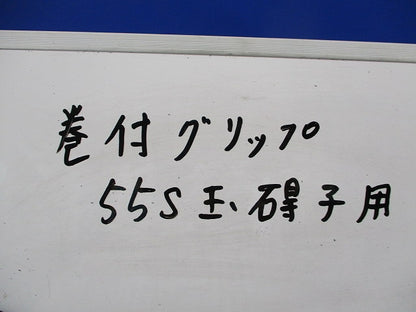 巻付グリップ
55S玉碍子用